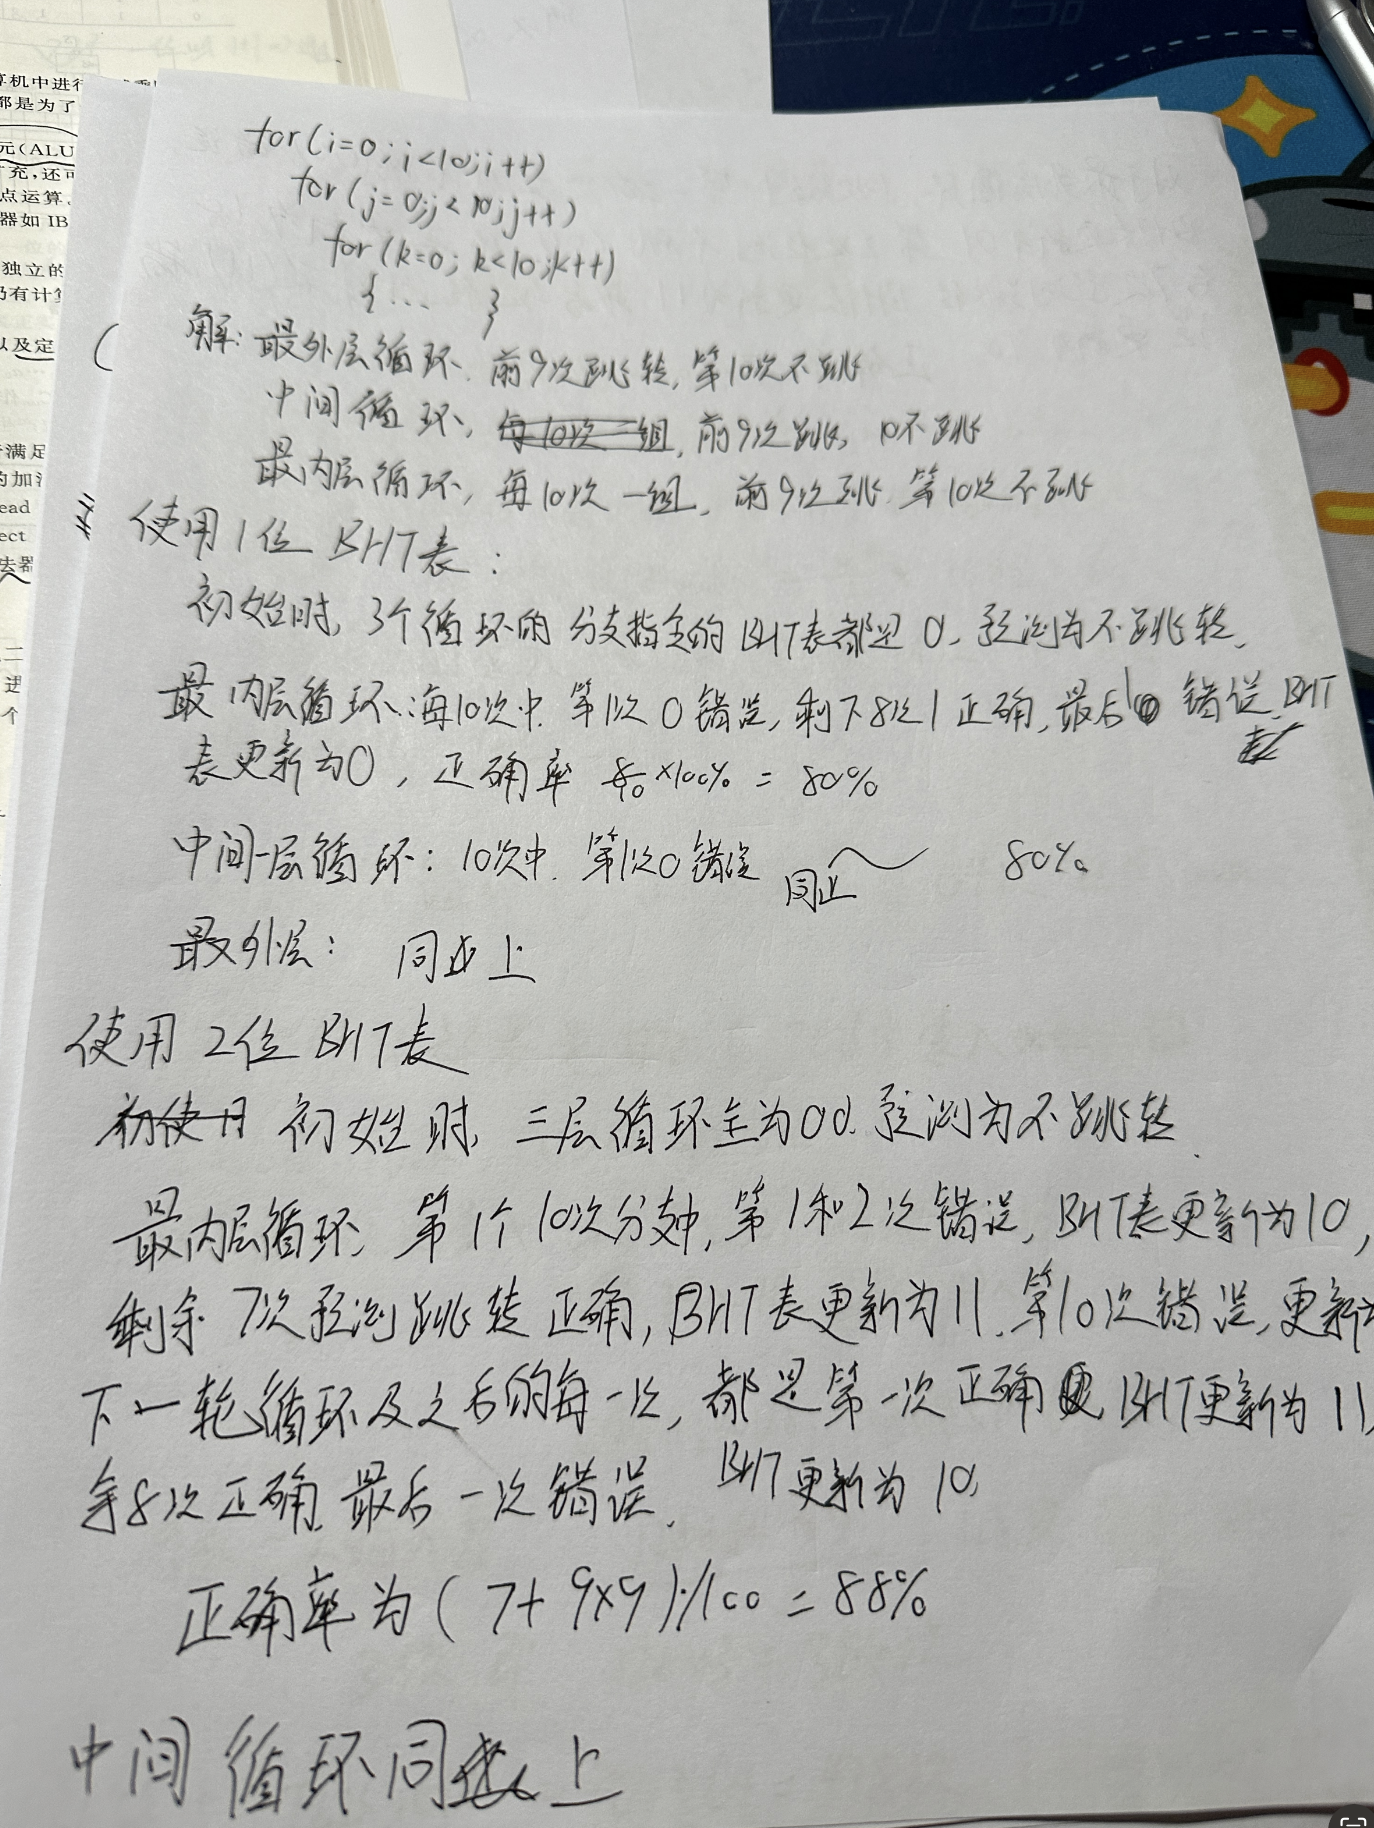 算机中进行
都是为了
元(ALU
充,还可
点运算,
器如 IB
独立的
仍有计算
以及定
满足
的加法
ead
ect
去器
二
进
个
for(i=0;i<10;i++)
for(j=0;j<10;j++)
for(k=0;k<10;k++)
{ ... }
解:最外层循环,前9次跳转,第10次不跳
中间循环,每10次一组,前9次跳,10不跳
最内层循环,每10次一组,前9次跳,第10次不跳
使用1位BHT表:
初始时,3个循环的分支指令的BHT表都是0,预测为不跳转.
最内层循环:每10次中,第1次0错误,剩下8次1正确,最后1错误,BHT
表更新为0,正确率 8/10×100% = 80%
中间一层循环:10次中,第1次0错误 同上 80%
最外层: 同上
使用2位BHT表
初使日 初始时,三层循环全为00,预测为不跳转.
最内层循环,第1个10次分支中,第1和2次错误,BHT表更新为10,
剩余7次预测跳转正确,BHT表更新为11.第10次错误,更新为
下一轮循环及之后的每一次,都是第一次正确 BHT更新为11,
余8次正确.最后一次错误. BHT更新为10.
正确率为(7+9×9)/100=88%
中间循环同上